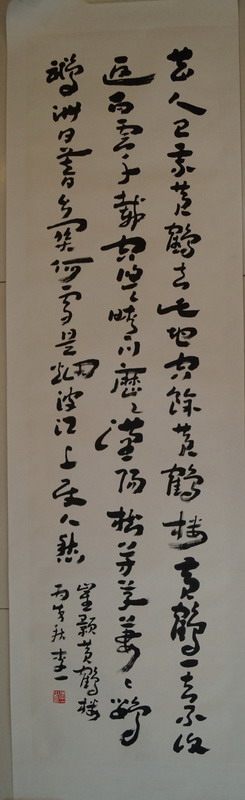 昔人已乘黄鶴去此地空餘黄鶴樓黄鶴一去不復
返白雲千載空悠々晴川歷々漢陽樹芳草萋々鸚
鵡洲日暮鄉關何處是烟波江上使人愁
崔顥黄鶴樓
丙戌秋李一